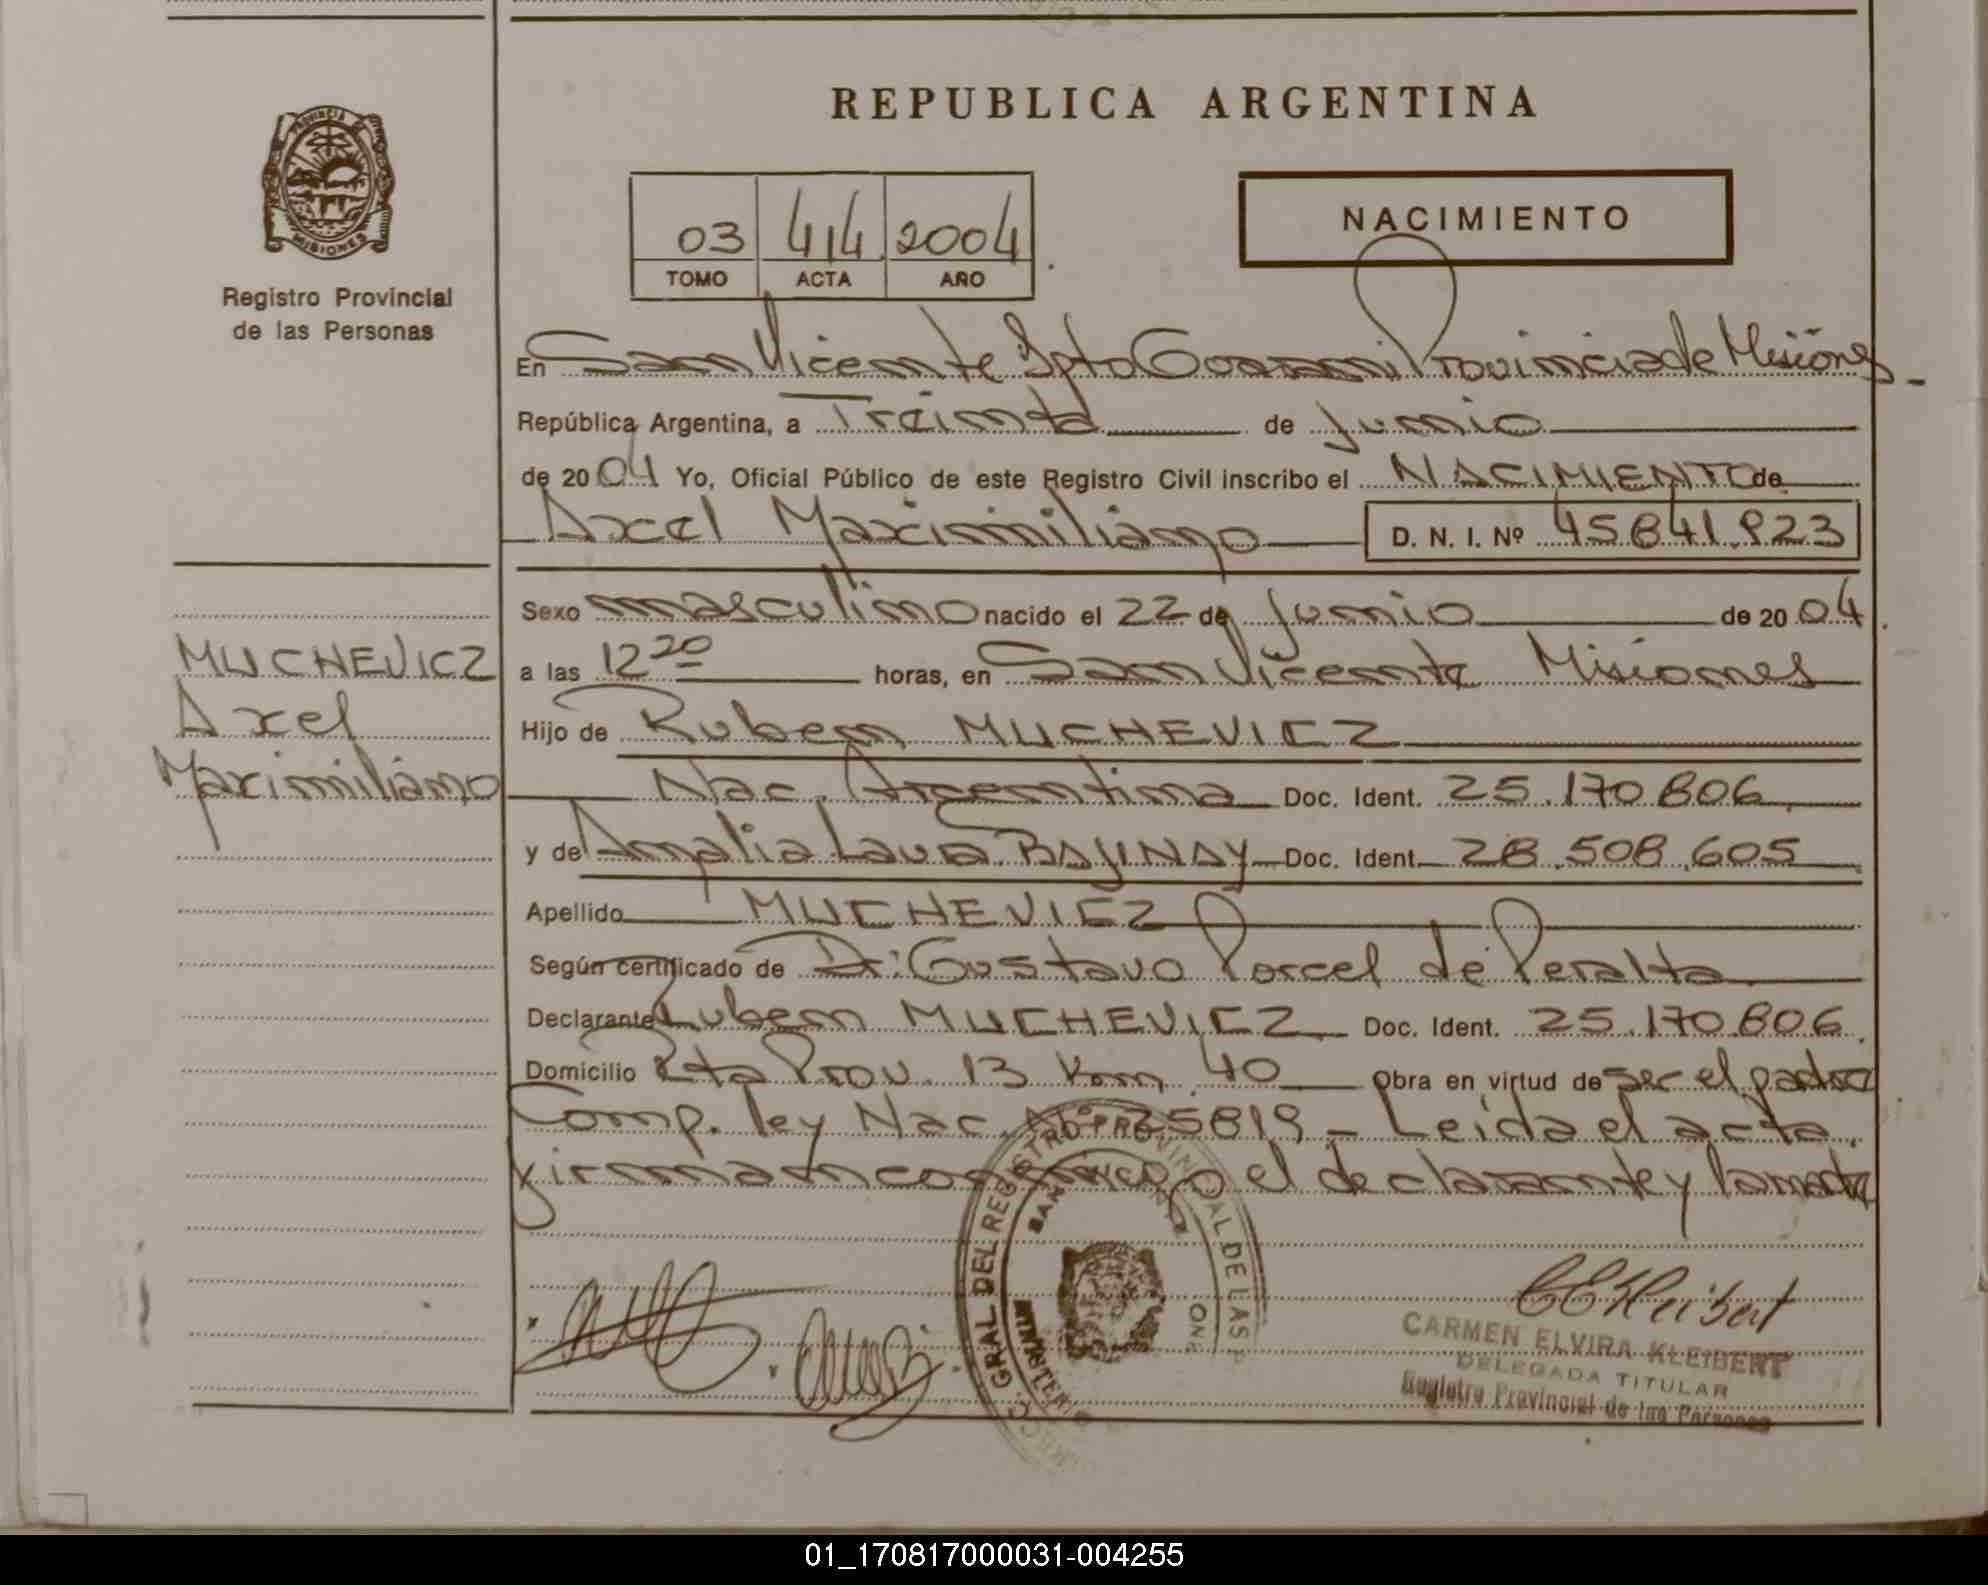 REPUBLICA ARGENTINA
PROVINCIA DE
MISIONES
Registro Provincial
de las Personas
03 414 2004
TOMO ACTA AÑO
NACIMIENTO
En San Vicente Dpto Guaraní Provincia de Misiones
República Argentina, a Treinta de Junio
de 2004 Yo, Oficial Público de este Registro Civil inscribo el NACIMIENTO de
Axel Maximiliano D. N. I. Nº 45841.923
Sexo masculino nacido el 22 de Junio de 2004
a las 12 20 horas, en San Vicente Misiones
Hijo de Ruben MUCHEVICZ
Nac. Argentina Doc. Ident. 25.170.806
y de Amalia Laura Doc. Ident. 28.508.605
Apellido MUCHEVICZ
Según certificado de Dr. Gustavo Porcel de Peralta
Declarante Ruben MUCHEVICZ Doc. Ident. 25.170.806
Domicilio Rta Prov. 13 Km 40 Obra en virtud de ser el padre
Comp. ley Nac. Nº 25819 - Leída el acta,
firman conmigo el declarante y la madre
MUCHEVICZ
Axel
Maximiliano
GRAL DEL REGISTRO PROVINCIAL DE LAS P
CEKleibert
CARMEN ELVIRA KLEIBERT
DELEGADA TITULAR
Registro Provincial de las Personas
01_170817000031-004255